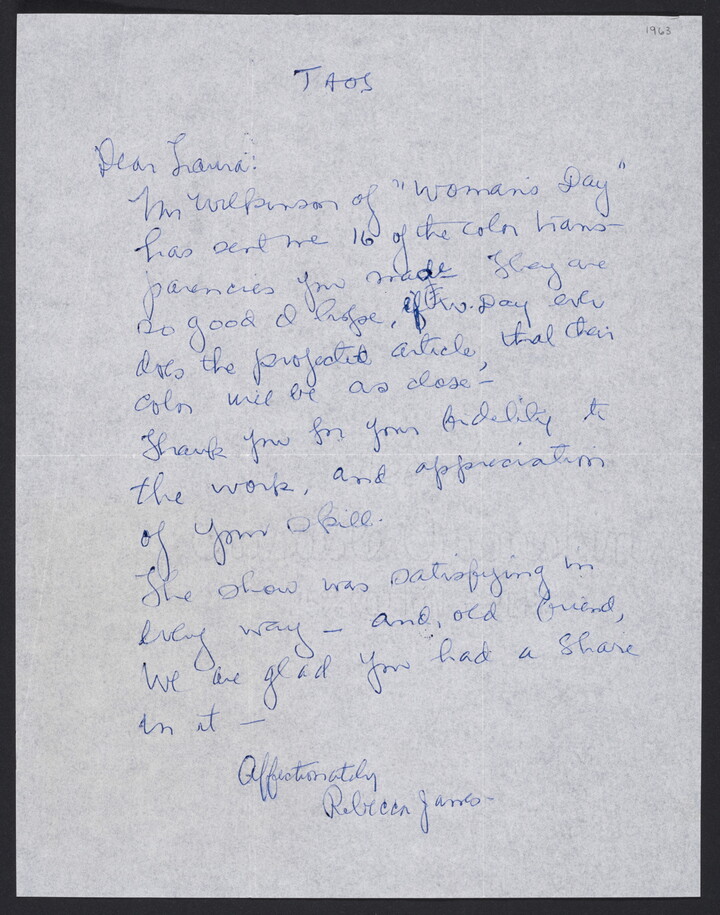 1963
TAOS
Dear Laura:
Mr Wilkinson of "Woman's Day"
has sent me 16 of the color trans-
parencies you made They are
so good I hope, if w. Day ever
does the projected article, that their
color will be as close -
Thank you for your fidelity to
the work, and appreciation
of your skill.
The show was satisfying in
every way - and, old friend,
We are glad you had a share
in it -
Affectionately
Rebecca James -